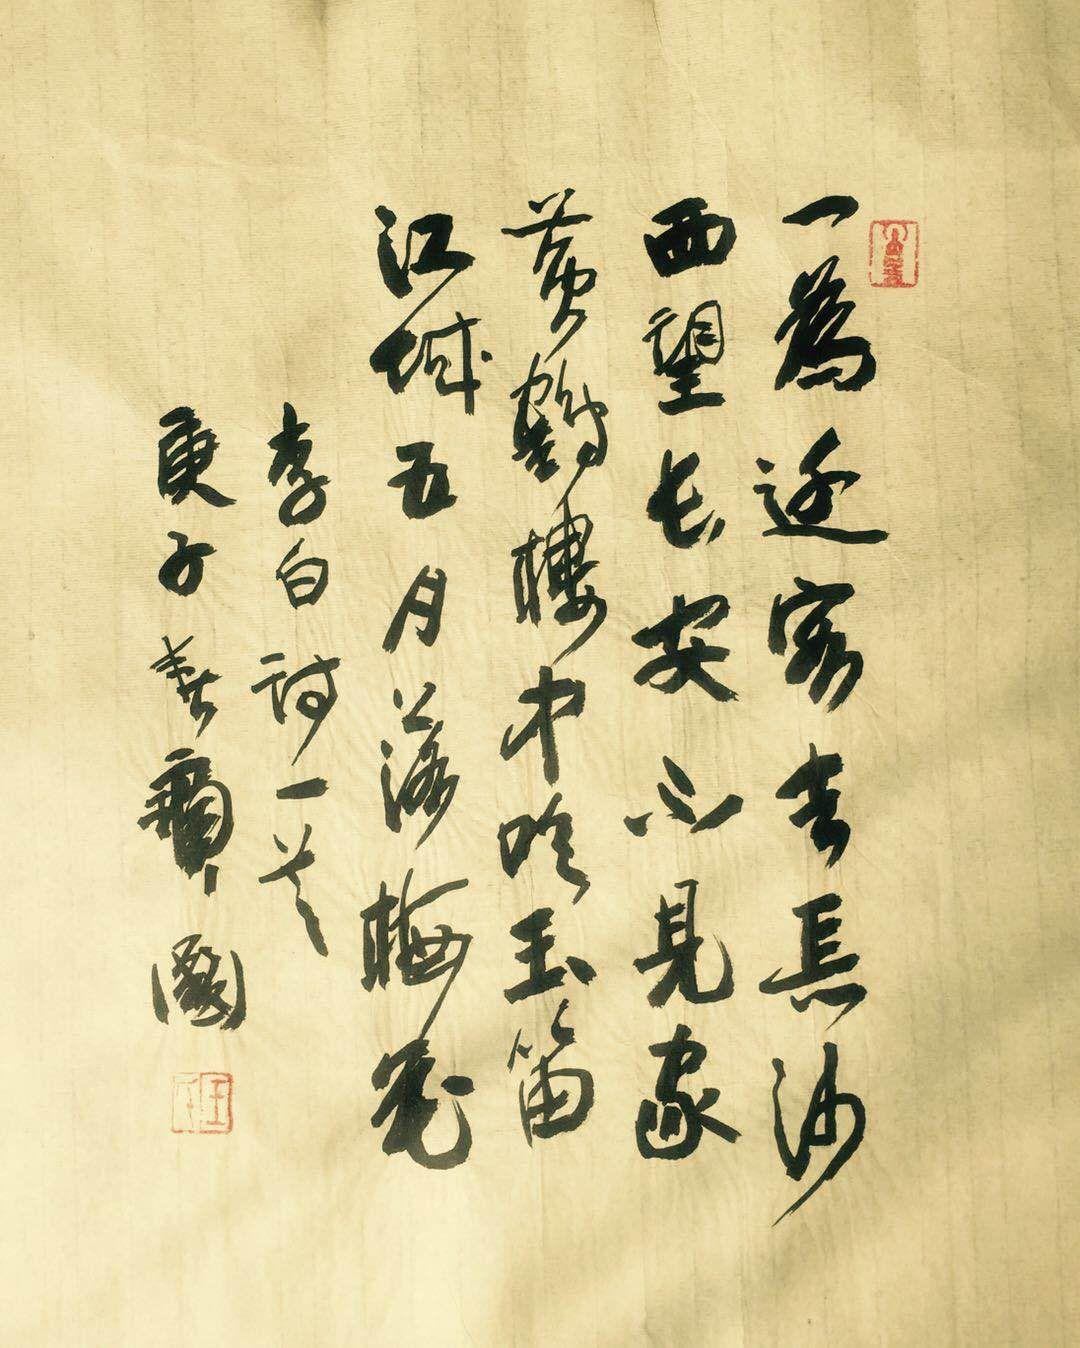 一為迁客去長沙
西望长安不見家
黄鶴樓中吹玉笛
江城五月落梅花
李白詩一首
庚子春國